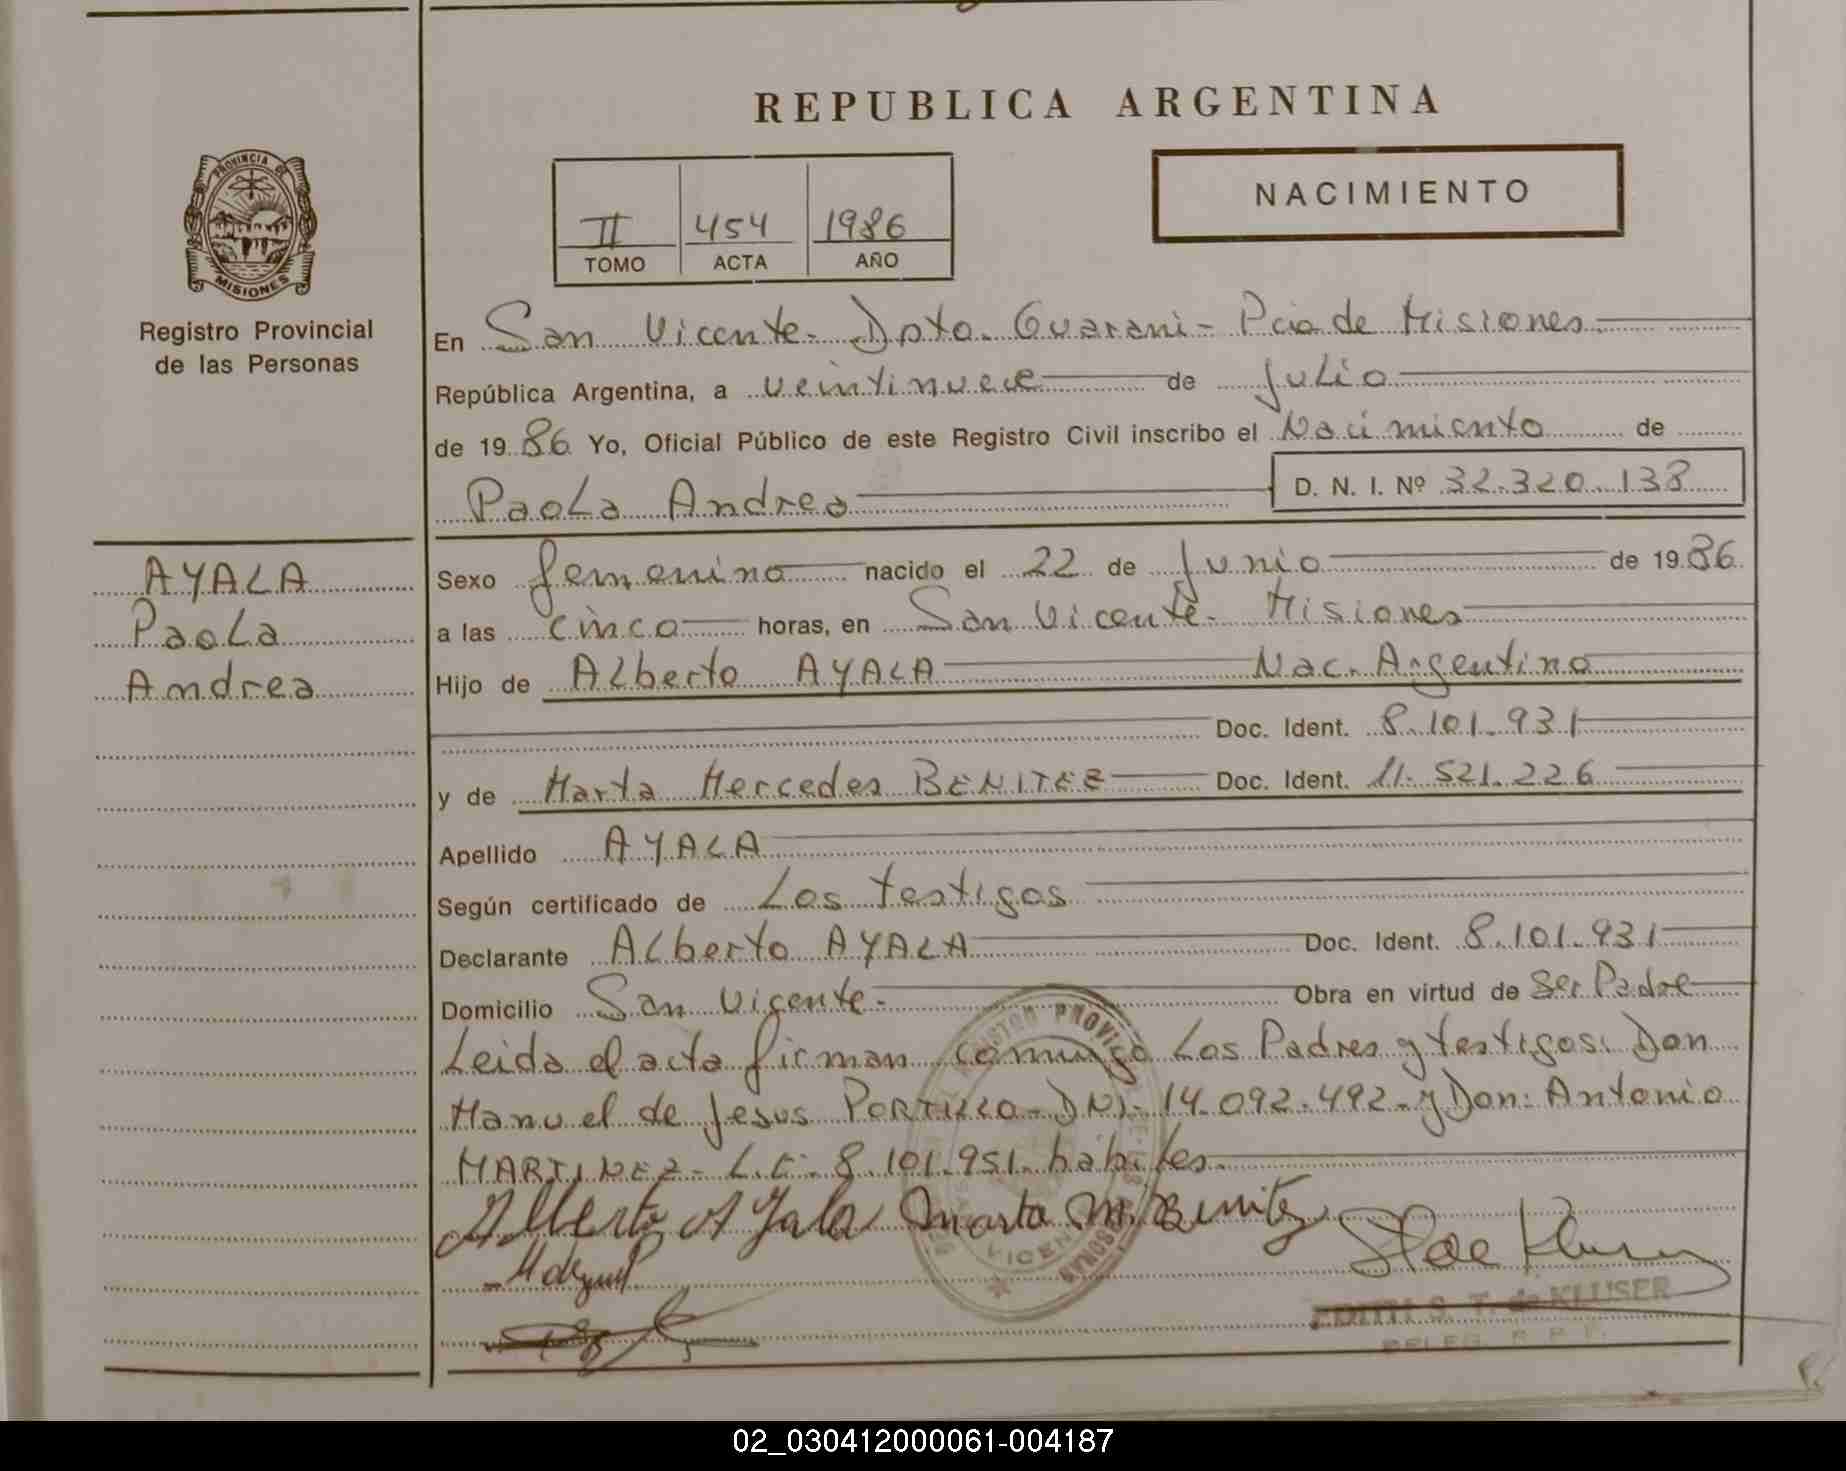 REPUBLICA ARGENTINA
PROVINCIA DE
MISIONES
Registro Provincial
de las Personas
II 454 1986
TOMO ACTA AÑO
NACIMIENTO
En San Vicente- Dpto. Guarani- Pcia de Misiones
República Argentina, a veintinueve de Julio
de 19 86 Yo, Oficial Público de este Registro Civil inscribo el Nacimiento de
Paola Andrea D. N. I. Nº 32.320.138
AYALA
Paola
Andrea
Sexo femenino nacido el 22 de Junio de 19 86
a las cinco horas, en San Vicente- Misiones
Hijo de Alberto AYALA Nac. Argentino
Doc. Ident. 8.101.931
y de Marta Mercedes BENITEZ Doc. Ident. 11.521.226
Apellido AYALA
Según certificado de Los testigos
Declarante Alberto AYALA Doc. Ident. 8.101.931
Domicilio San Vicente- Obra en virtud de Ser Padre
Leida el acta firman conmigo Los Padres y testigos: Don
Manuel de Jesus PORTILLO- DNI- 14.092.492- y Don: Antonio
MARTINEZ- L.E- 8.101.951. hábiles-
Alberto Ayala Marta M. Benitez
EDITH S. T. de KLUSER
02_030412000061-004187